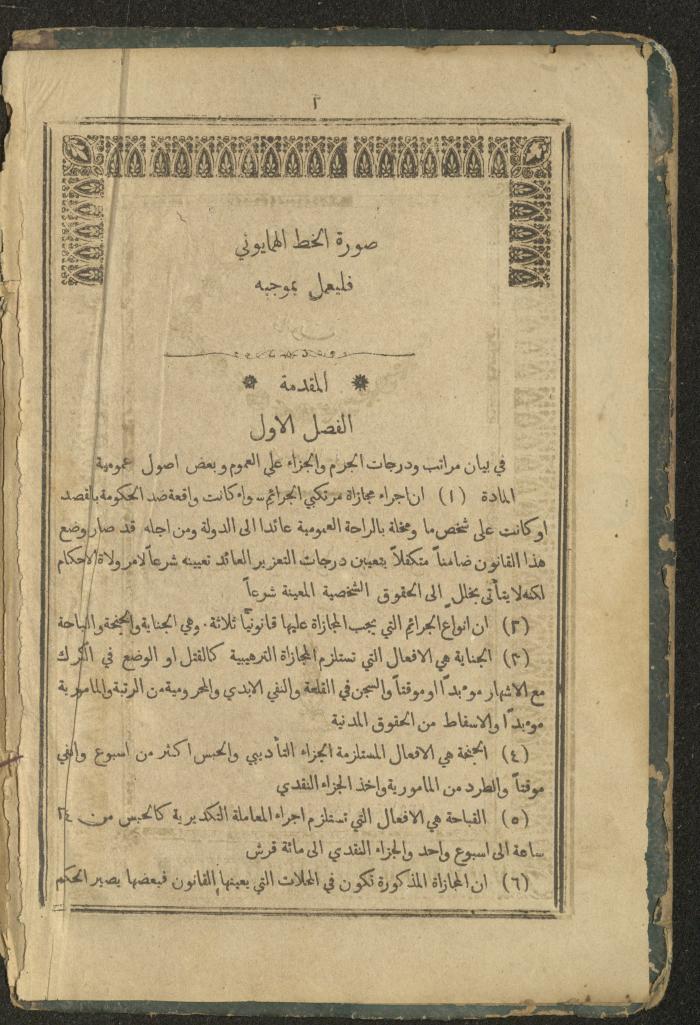 ٢
صورة الخط الهمايوني
فليعمل بموجبه
المقدمة
الفصل الاول
في بيان مراتب ودرجات الجرم والجزاء على العموم وبعض اصول عمومية
المادة (١) ان اجراء مجازاة مرتكبي الجرائم سواء كانت واقعة ضد الحكومة بالقصد
او كانت على شخص ما ومخلة بالراحة العمومية عائدا الى الدولة ومن اجله قد صار وضع
هذا القانون ضامناً متكفلاً بتعيين درجات التعزير العائد تعيينه شرعاً لامر ولاة الاحكام
لكنه لا يتأتى بخلل الى الحقوق الشخصية المعينة شرعاً
(٢) ان انواع الجرائم التي يجب المجازاة عليها قانونيًا ثلاثة. وهي الجناية والجنحة والقباحة
(٣) الجناية هي الافعال التي تستلزم المجازاة الترهيبية كالقتل او الوضع في الكرك
مع الاشهار موءبدًا او موقتاً والسجن في القلعة والنفي الابدي والمحرومية من الرتبة والمامورية
موءبدًا والاسقاط من الحقوق المدنية
(٤) الجنحة هي الافعال المستلزمة الجزاء التأديبي والحبس اكثر من اسبوع والنفي
موقتاً والطرد من المامورية واخذ الجزاء النقدي
(٥) القباحة هي الافعال التي تستلزم اجراء المعاملة التكديرية كالحبس من ٢٤
ساعة الى اسبوع واحد والجزاء النقدي الى مائة قرش
(٦) ان المجازاة المذكورة تكون في المحلات التي يعينها القانون فبعضها يصير الحكم